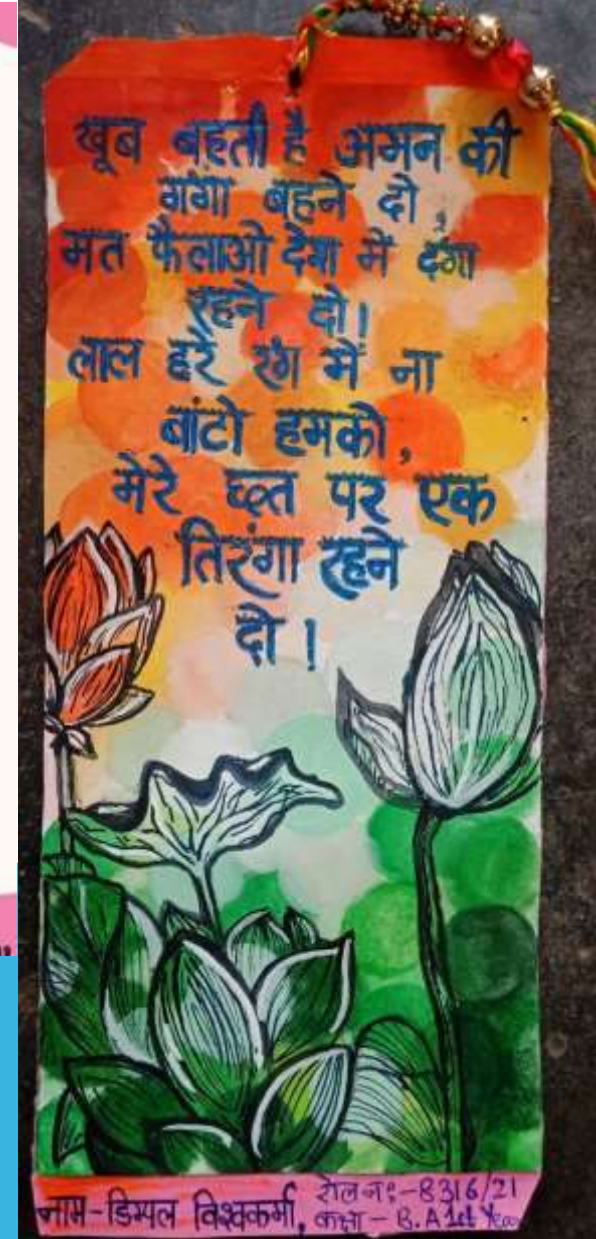 खूब बहती है अमन की
गंगा बहने दो,
मत फैलाओ देश में दंगा
रहने दो।
लाल हरे रंग में ना
बांटो हमको,
मेरे छत पर एक
तिरंगा रहने
दो।
नाम-डिम्पल विश्वकर्मा, रोल नः-8316/21
कक्षा - B.A 1st Year